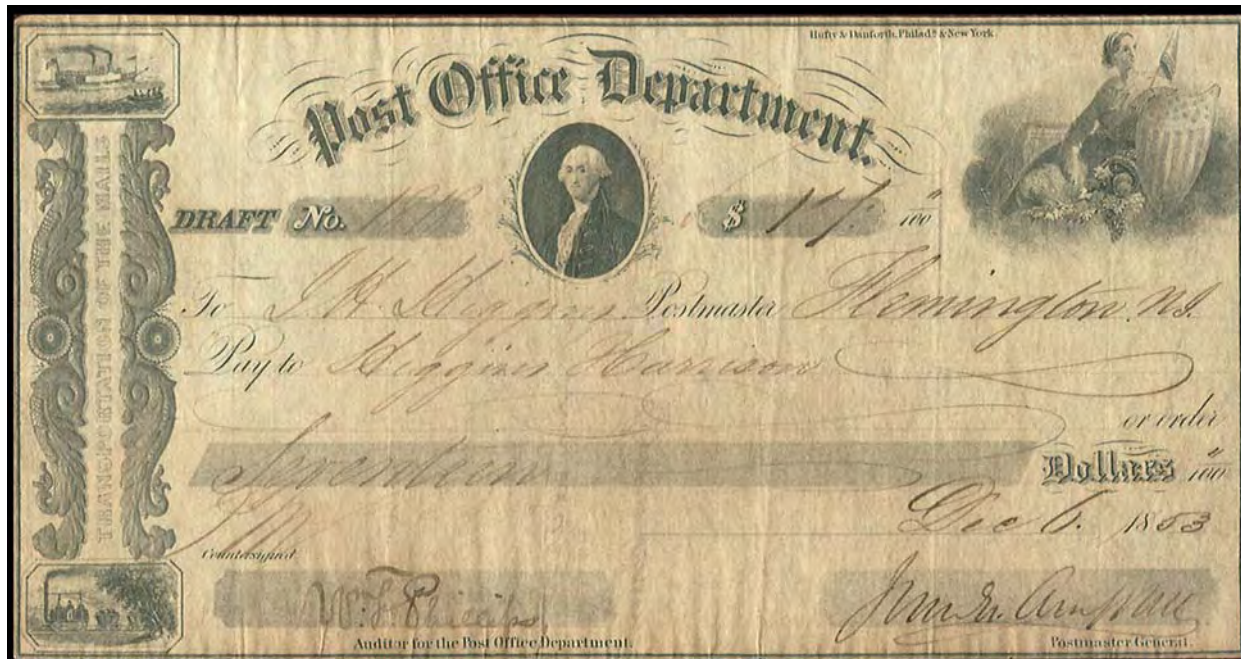 Hufty & Danforth, Philadª. & New York.
Post Office Department.
TRANSPORTATION OF THE MAILS
DRAFT No.
$ 17. " 100
To J. H. Higgins Postmaster Flemington N.J.
Pay to Higgins Harrison
or order
Seventeen Dollars " 100
Dec 6. 1853
Countersigned
W. F. Phillips
Auditor for the Post Office Department.
James Campbell
Postmaster General.